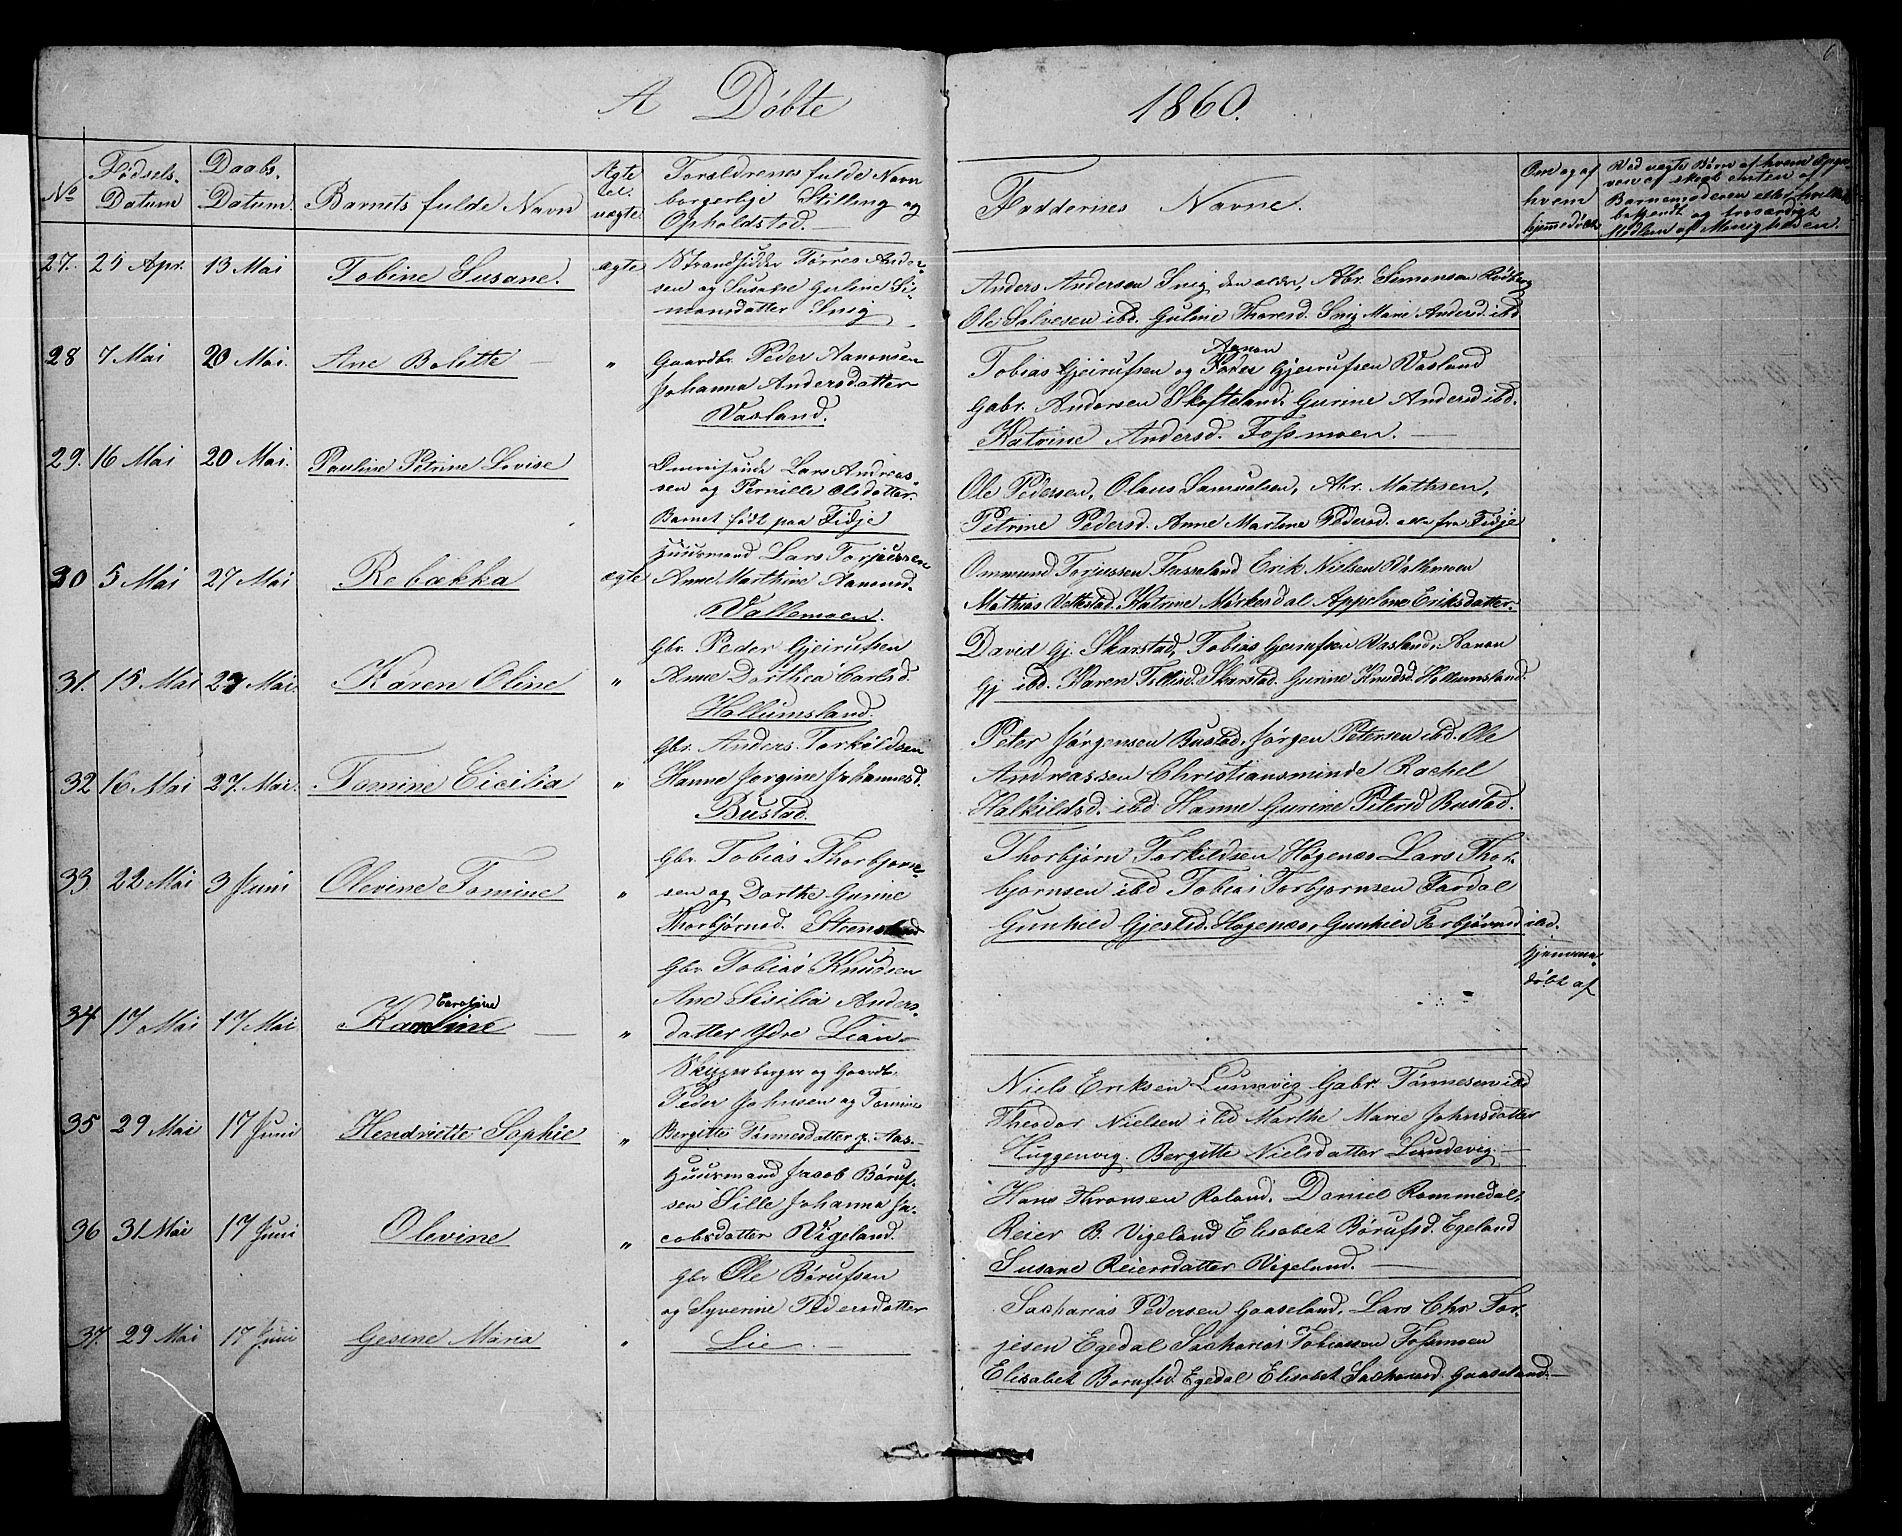 6
A Döbte 1860.
No
Fødsels-
Datum
Daabs-
Datum.
Barnets fulde Navn
Ægte
el.
uægte
Forældrenes fulde Navn
borgerlige Stilling og
Opholdsted.
Faddernes Navne.
Om og af
hvem
hjemmedøbt
Ved uægte Børn af hvem Opga-
ven af skeet enten af
Barnemoderen eller
bekjendt og troværdigt
Medlem af Menigheden.
27. 25 Apr. 13 Mai Tobine Susane. ægte
Strandsidder Tørres Ander-
sen og Susane Guline Si-
monsdatter Snig
Anders Andersen Snig den ældre, Abr. Simonsen Rødberg
Ole Salvesen ibd. Guline Thoresd. Snig Marie Andersd. ibd
28 7 Mai 20 Mai. Ane Bolette — "
Gaardbr Peder Aanonsen
Johanna Andersdatter
Vasland.
Aanon
Tobias Gjeirulfsen og Peder Gjeirulfsen Vasland
Gabr. Andersen Skofteland. Gurine Andersd ibd.
Katrine Andersd. Fossmoen. —
29. 16 Mai 20 Mai. Pauline Petrine Lovise
Omreisende Lars Andreas-
sen og Pernille Olsdatter.
Barnet født paa Fidje
Ole Pedersen, Olaus Samuelsen, Abr. Mathisen,
Petrine Pedersd. Anne Martine Pedersd. alle fra Fidje
30 5 Mai 27 Mai Rebækka ægte
Huusmand Lars Torjussen
Anne Marthine Aanonsd.
Vallemoen.
Ommund Torjussen Fasseland Erik Nielsen Valemoen
Mathias Valestad. Katrine Mørkesdal Appelone Eriksdatter.
31. 15 Mai 27 Mai. Karen Oline "
Gbr. Peder Gjeirulfsen
Anne Dorthea Carlsd.
Hallumsland.
David Gj. Skarstad, Tobias Gjeirulfsen Vasland. Aanon
Gj ibd. Karen Tellisd. Skarstad. Gurine Knudsd. Hollumsland.
32 16 Mai 27. Mai. Tomine Cicilia "
Gbr. Anders. Torkildsen
Hanne Jorgine Johannesd.
Bustad.
Peter Jørgensen Bustad. Jørgen Petersen ibd. Ole
Andreassen Christiansminde Rachel
Halkildsd. ibd. Hanne Gurine Petersd Bustad.
33. 22 Mai 3 Juni Olevine Tomine "
Gbr. Tobias Thorbjørn-
sen og Dorthe Gurine
Thorbjørnsd. Steensland
Thorbjørn Torkildsen Høgenæs Lars Thor-
bjørnsen ibd Tobias Torbjørnsen Fardal
Gunhild Gjestsd. Høgenæs, Gunhild Torbjørnsd ibd.
34 17 Mai 17 Mai
Caroline
Karoline — "
Gbr Tobias Knudsen
Ane Sisilia Anders-
datter Ydre Lian
Hjemme-
døbt af
35 29 Mai 17 Juni Henriette Sophie "
Skipperborger og Gaardb.
Peder Johnsen og Tomine
Bergitte Tønnesdatter p. Aas.
Niels Eriksen Lunnevig Gabr. Tønnesen ibd
Theodor Nielsen ibd Marthe Marie Johnsdatter
Kuggenvig. Bergitte Nielsdatter Lundevig. —
36 31 Mai 17 Juni Olevine "
Huusmand Jacob Børuf-
sen Sille Johanna Ja-
cobsdatter Vigeland.
Hans Thronsen Roland. Daniel Rommedal.
Reier B. Vigeland Elisabet Børufsd. Egeland
Susane Reiersdatter Vigeland. —
37. 29 Mai 17 Juni Gesine Maria "
Gbr Ole Børufsen
og Syverine Pedersdatter
Lie. —
Sacharias Pedersen Gaaseland. Lars Chr. Tor-
jesen Egedal Sacharias Tobiassen Fossmoen
Elisabet Børufsd. Egedal Elisabet Sachariasd. Gaaseland. —